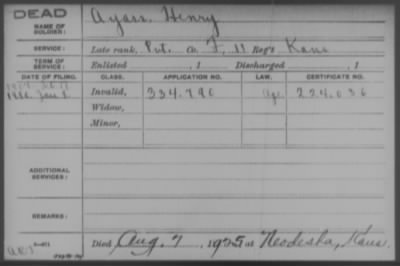 DEAD
NAME OF SOLDIER: Ayars, Henry
SERVICE: Late rank, Pvt. Co. F, 11 Reg't Kans
TERM OF SERVICE: Enlisted , 1 Discharged , 1
DATE OF FILING. CLASS. APPLICATION NO. LAW. CERTIFICATE NO.
Invalid, 334.790 224.036
Widow,
Minor,
ADDITIONAL SERVICES:
REMARKS:
Died Aug. 7, 1925 at Neodesha, Kans.